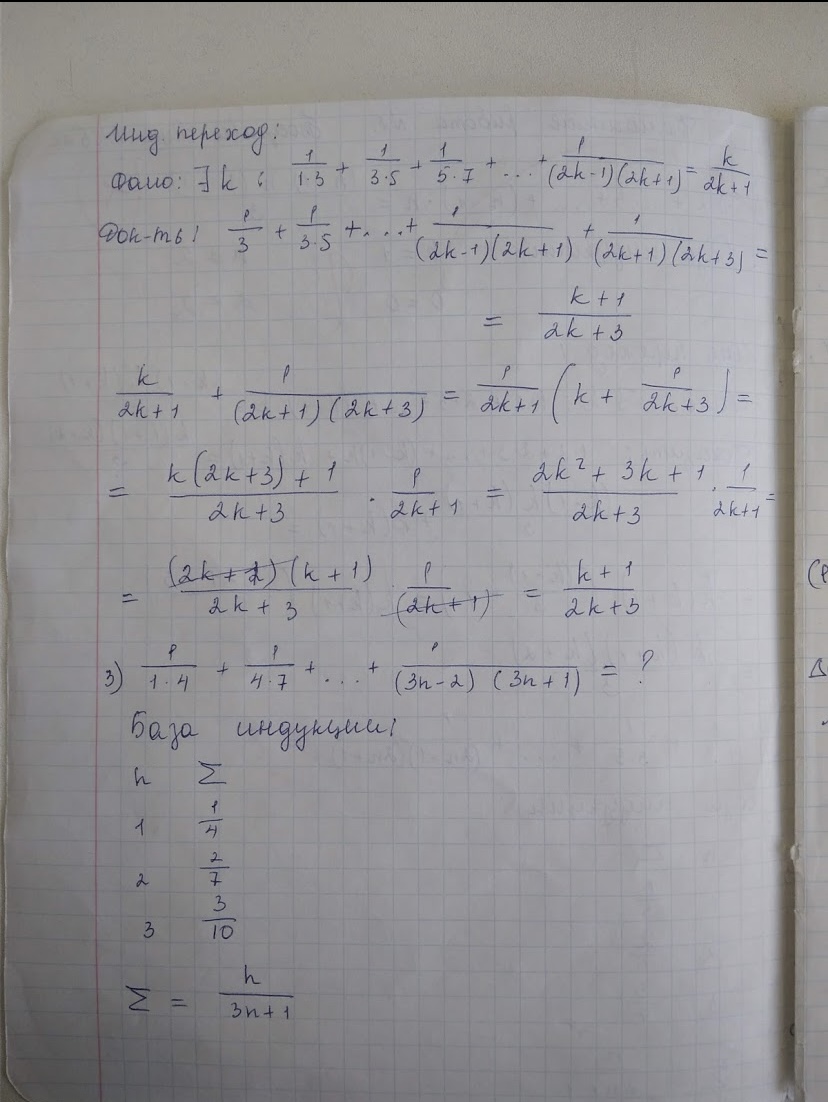 Инд. переход:
Дано: ∃ k : 1/(1·3) + 1/(3·5) + 1/(5·7) + ... + 1/((2k-1)(2k+1)) = k/(2k+1)
Док-ть: 1/3 + 1/(3·5) + ... + 1/((2k-1)(2k+1)) + 1/((2k+1)(2k+3)) =
= (k+1)/(2k+3)
k/(2k+1) + 1/((2k+1)(2k+3)) = 1/(2k+1) (k + 1/(2k+3)) =
= (k(2k+3)+1)/(2k+3) · 1/(2k+1) = (2k²+3k+1)/(2k+3) · 1/(2k+1) =
= ((2k+1)(k+1))/(2k+3) · 1/(2k+1) = (k+1)/(2k+3)
3) 1/(1·4) + 1/(4·7) + ... + 1/((3n-2)(3n+1)) = ?
База индукции:
n Σ
1 1/4
2 2/7
3 3/10
Σ = n/(3n+1)